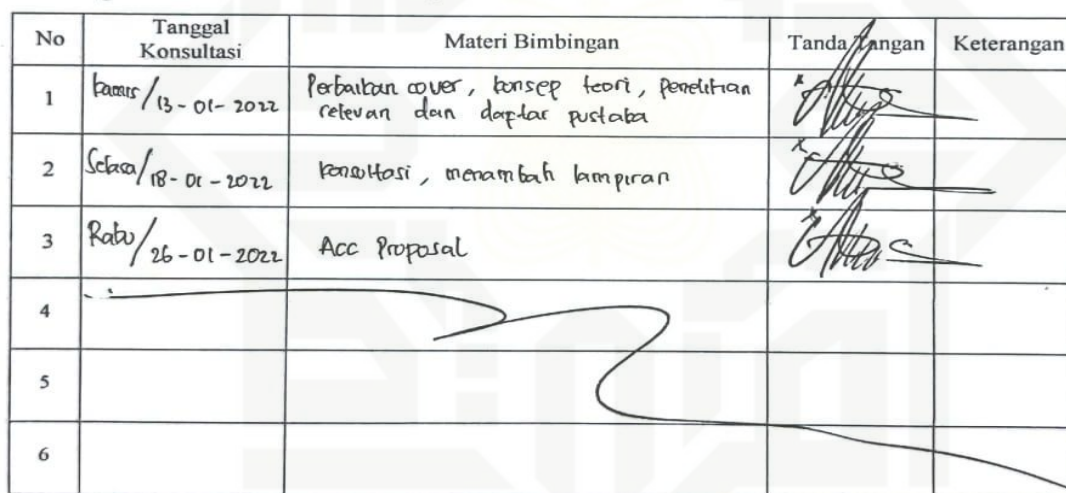 No Tanggal Konsultasi Materi Bimbingan Tanda Tangan Keterangan
1 Kamis/13-01-2022 Perbaikan cover, konsep teori, penelitian
relevan dan daptar pustaka
2 Selasa/18-01-2022 konsultasi, menambah lampiran
3 Rabu/26-01-2022 Acc Proposal
4
5
6